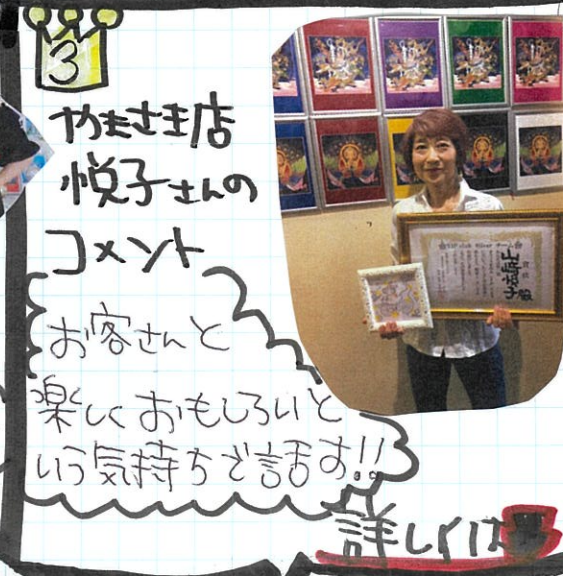 3
やまさき店
悦子さんの
コメント
お客さんと
楽しくおもしろいと
いう気持ちで話す!!
賞状
山崎悦子殿
詳しくは